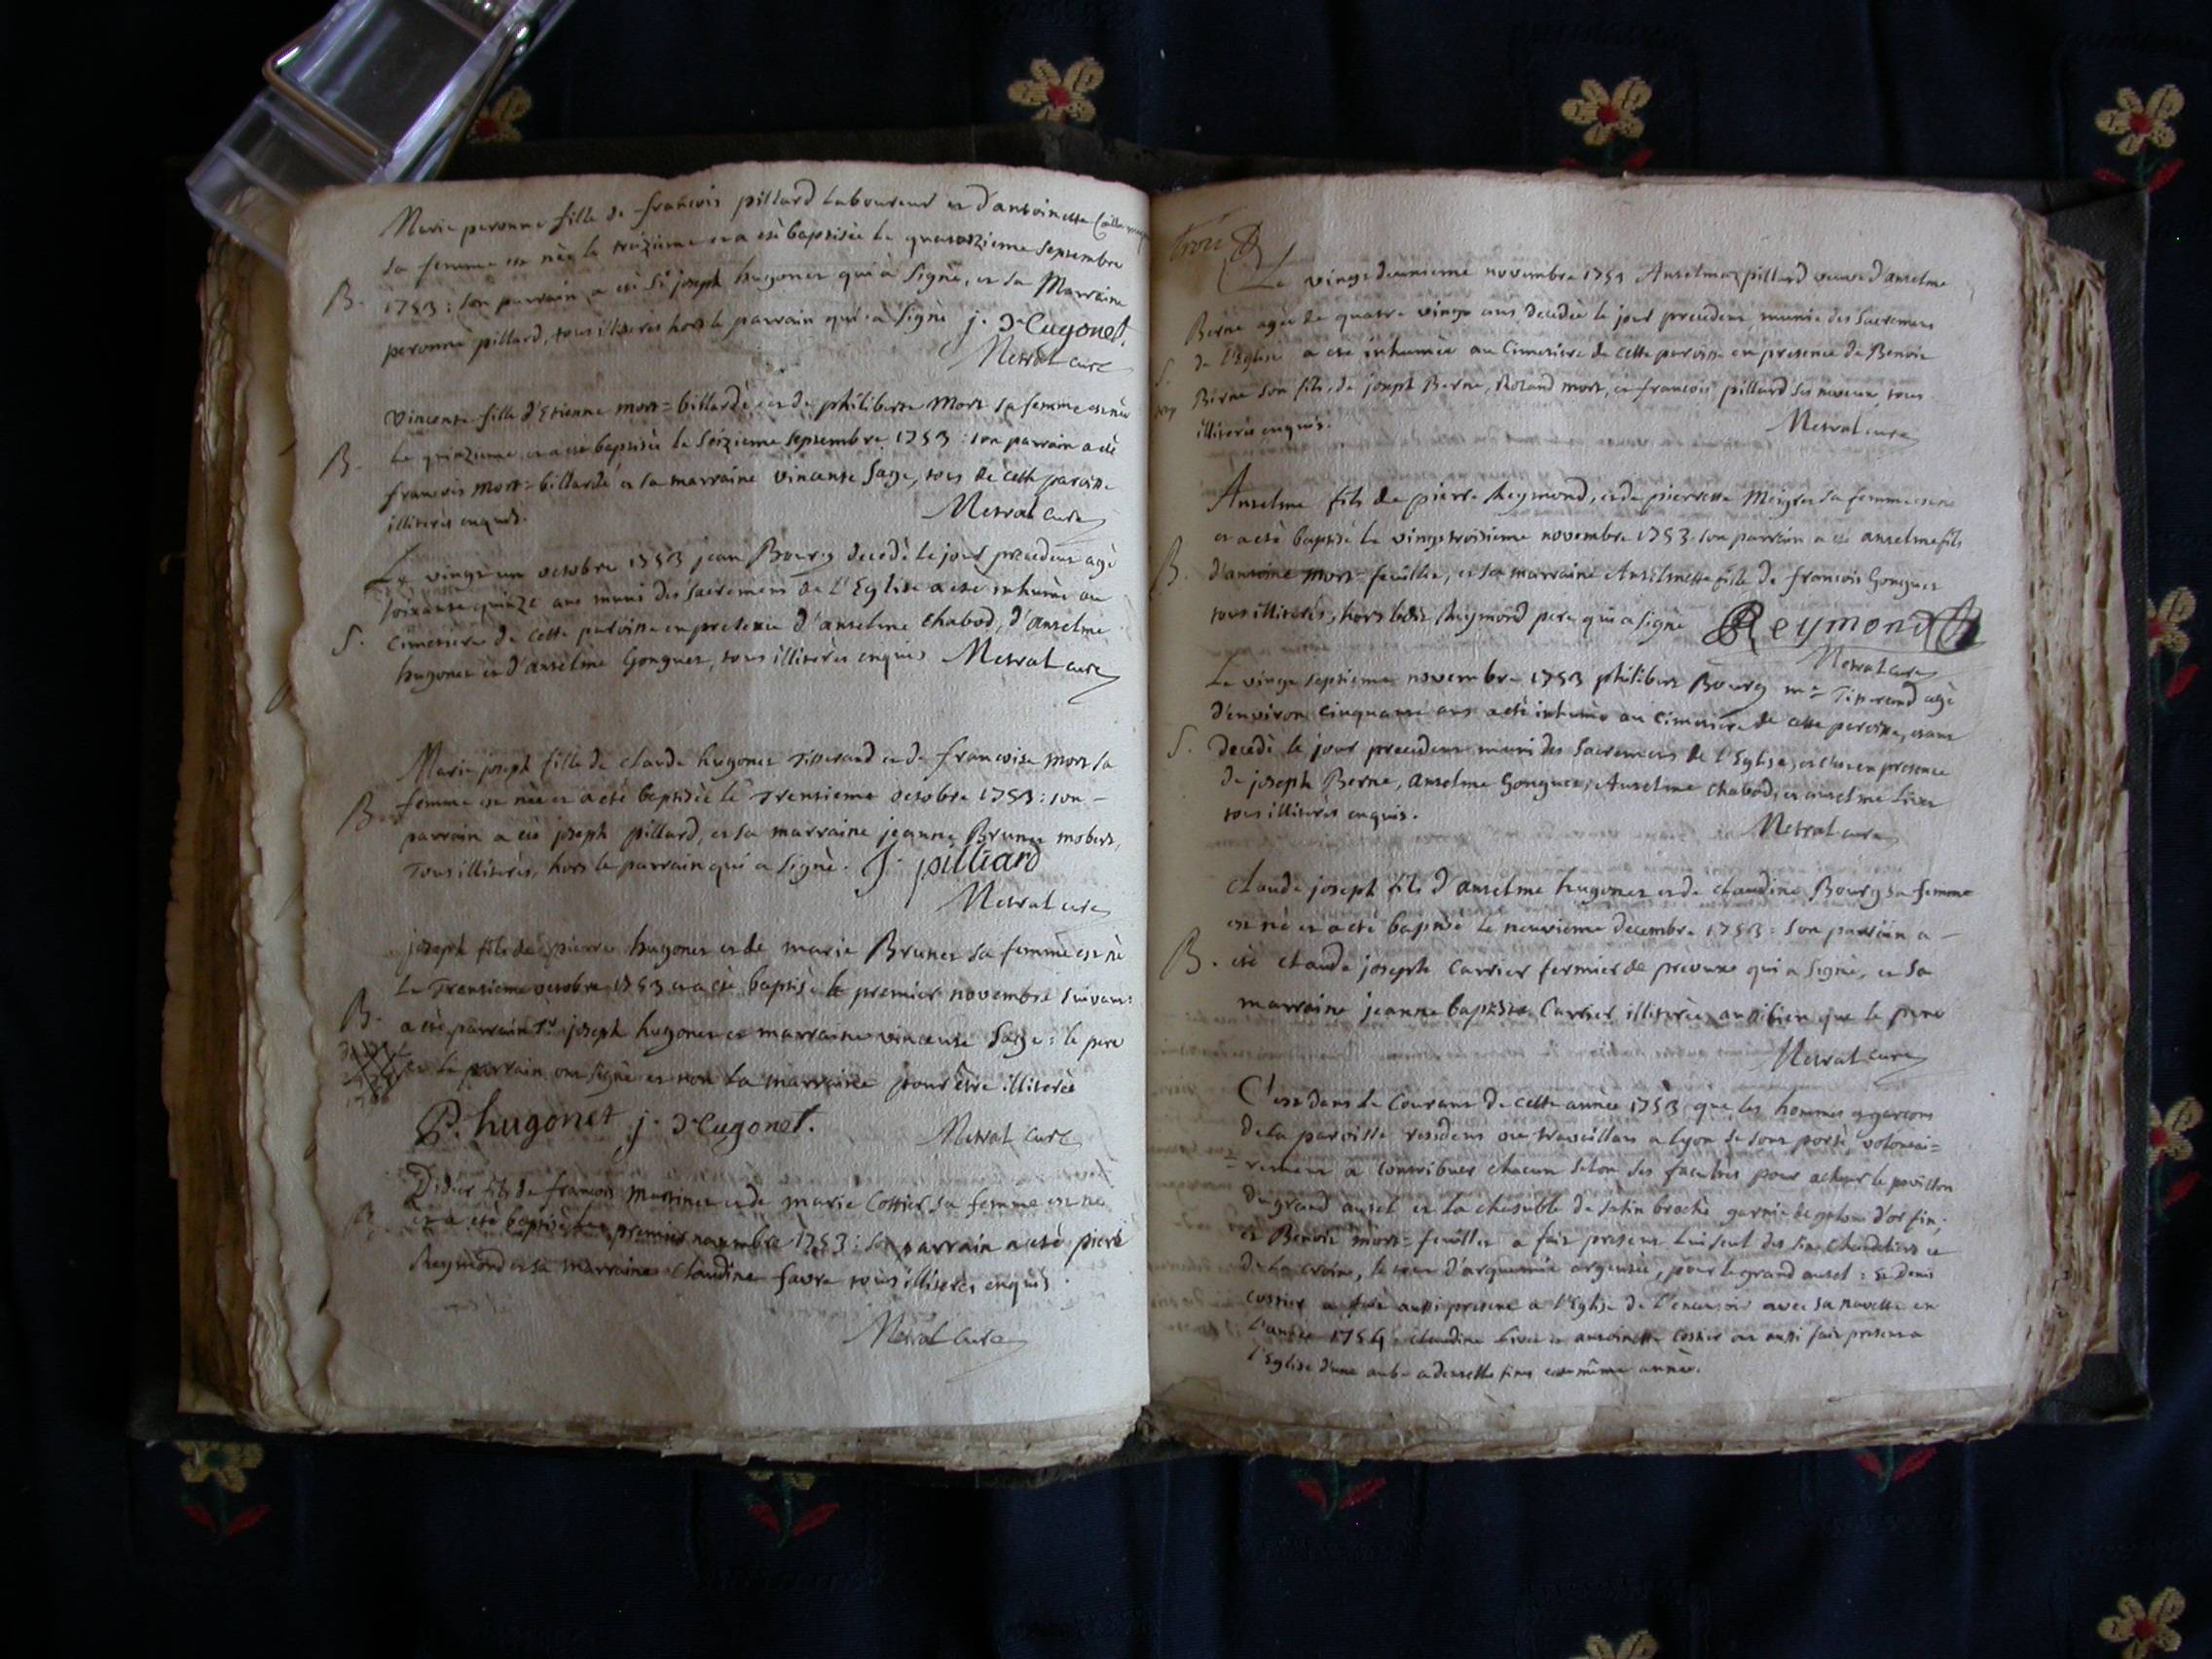 Marie peronne fille de francois pillard Laboureur et d'antoinette
sa femme est née le treizieme et a esté baptisée le quatorzieme septembre
B. 1753: son parrain a été Sr joseph hugonet qui a signé, et sa Marraine
peronne pillard, tous illiterés hors le parrain qui a signé j. hugonet.
Metral curé
Vincente fille d'Etienne mort=billardé et de philiberte Mort sa femme est née
B. le quinzieme, et a esté baptisée le seizieme septembre 1753: son parrain a été
francois mort=billardé et sa marraine vincente Sage, tous de cette paroisse
illiterés enquis. Metral curé
Le vingt un octobre 1753 jean Bourg decedé le jour precedent agé
soixante quinze ans muni des sacremens de l'Eglise a esté inhumé au
S. cimetiere de cette paroisse en presence d'anselme chabod, d'anselme
hugonet et d'anselme Gonguet, tous illiterés enquis Metral curé
Marie joseph fille de claude hugonet Tisserand et de francoise mort sa
B. femme est née et a esté baptisée le Trentieme octobre 1753: son
parrain a été joseph pillard, et sa marraine jeanne Brunet
Tous illiterés, hors le parrain qui a signé. J. pilliard
Metral curé
joseph fils de pierre hugonet et de marie Brunet sa femme est né
Le Trentieme octobre 1753 et a esté baptisé le premier novembre suivant:
B. a été parrain Sr joseph hugonet et marraine vincente Sage: le pere
et le parrain ont signé et non la marraine pour être illiterée
P. hugonet j. hugonet.
Metral curé
Didier fils de francois Martinet et de marie Cottier sa femme est né
B. et a eté baptisé le premier novembre 1753: son parrain a eté pierre
Reymond et sa marraine claudine favre tous illiterés enquis.
Metral curé
Trois
Le vingt deuxieme novembre 1753 Anselma pillard veuve d'anselme
Berne agée de quatre vingt ans, decedée le jour precedent, munie des Sacremens
S. de l'Eglise a eté inhumée au Cimetiere de cette paroisse en presence de Benoit
Berne son fils, de joseph Berne, Roland mort, et francois pillard ses neveux, tous
illiterés enquis. Metral curé
Anselme fils de pierre Reymond, et de pierrette Meigret sa femme est né
et a eté baptisé le vingt troisieme novembre 1753. son parrain a eté anselme fils
B. d'antoine mort=feuillet, et sa marraine Anselmette fille de francois Gonguet
tous illiterés, hors ledit Reymond pere qui a signé Reymond
Metral curé
Le vingt septieme novembre 1753 philibert Bourg me Tisserand agé
d'environ cinquante ans a eté inhumé au cimetiere de cette paroisse, etant
S. decedé le jour precedent muni des Sacremens de l'Eglise, et ce en presence
de joseph Berne, anselme Gonguet, Anselme chabod, et anselme Livet
tous illiterés enquis.
Metral curé
claude joseph fils d'anselme hugonet et de claudine Bourg sa femme
est né et a eté baptisé le neuvieme decembre 1753: son parrain a
B. eté claude joseph Carrier fermier de qui a signé, et sa
marraine jeanne baptiste Carrier illiterée aussi bien que le pere
Metral curé
C'est dans le Courant de cette année 1753 que les hommes et garcons
de la paroisse residens ou travaillans a lyon se sont porté volontai=
=rement a contribuer chacun selon ses facultés pour acheter le pavillon
du grand autel et la chasuble de satin broché garnie de galons d'or fin;
et Benoit mort=feuillet a fait present lui seul des six chandeliers et
de la croix, le tout d'arquemie argentée, pour le grand autel: Sr Denis
cottier a fait aussi present a l'Eglise de l'encensoir avec sa navette en
l'année 1754. claudine Livet et antoinette cottier ont aussi fait present a
l'Eglise d'une aube a dentelle fine même année.